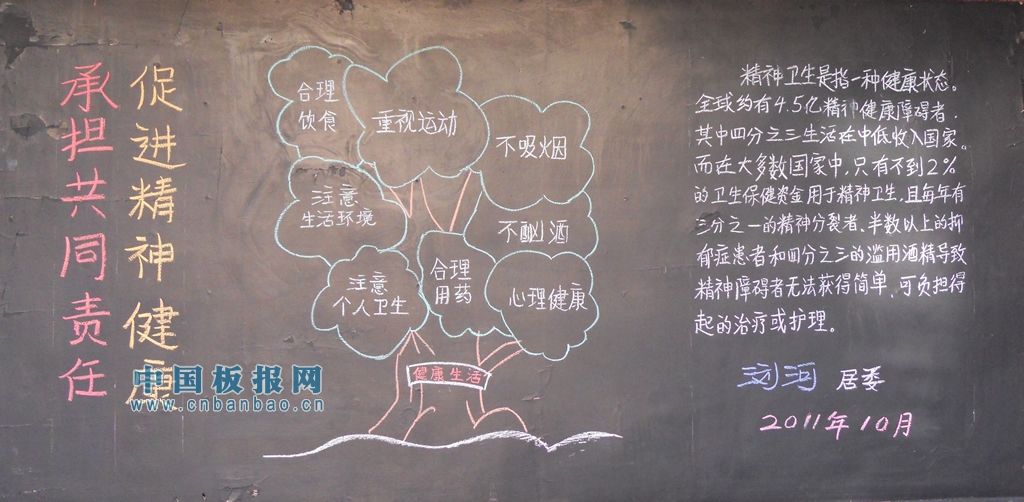 承担共同责任
促进精神健康
合理
饮食
重视运动
不吸烟
注意
生活环境
不酗酒
注意
个人卫生
合理
用药
心理健康
健康生活
精神卫生是指一种健康状态。
全球约有4.5亿精神健康障碍者.
其中四分之三生活在中低收入国家。
而在大多数国家中,只有不到2%
的卫生保健资金用于精神卫生,且每年有
三分之一的精神分裂者、半数以上的抑
郁症患者和四分之三的滥用酒精导致
精神障碍者无法获得简单、可负担得
起的治疗或护理。
浏河 居委
2011年10月
中国板报网
www.cnbanbao.cn